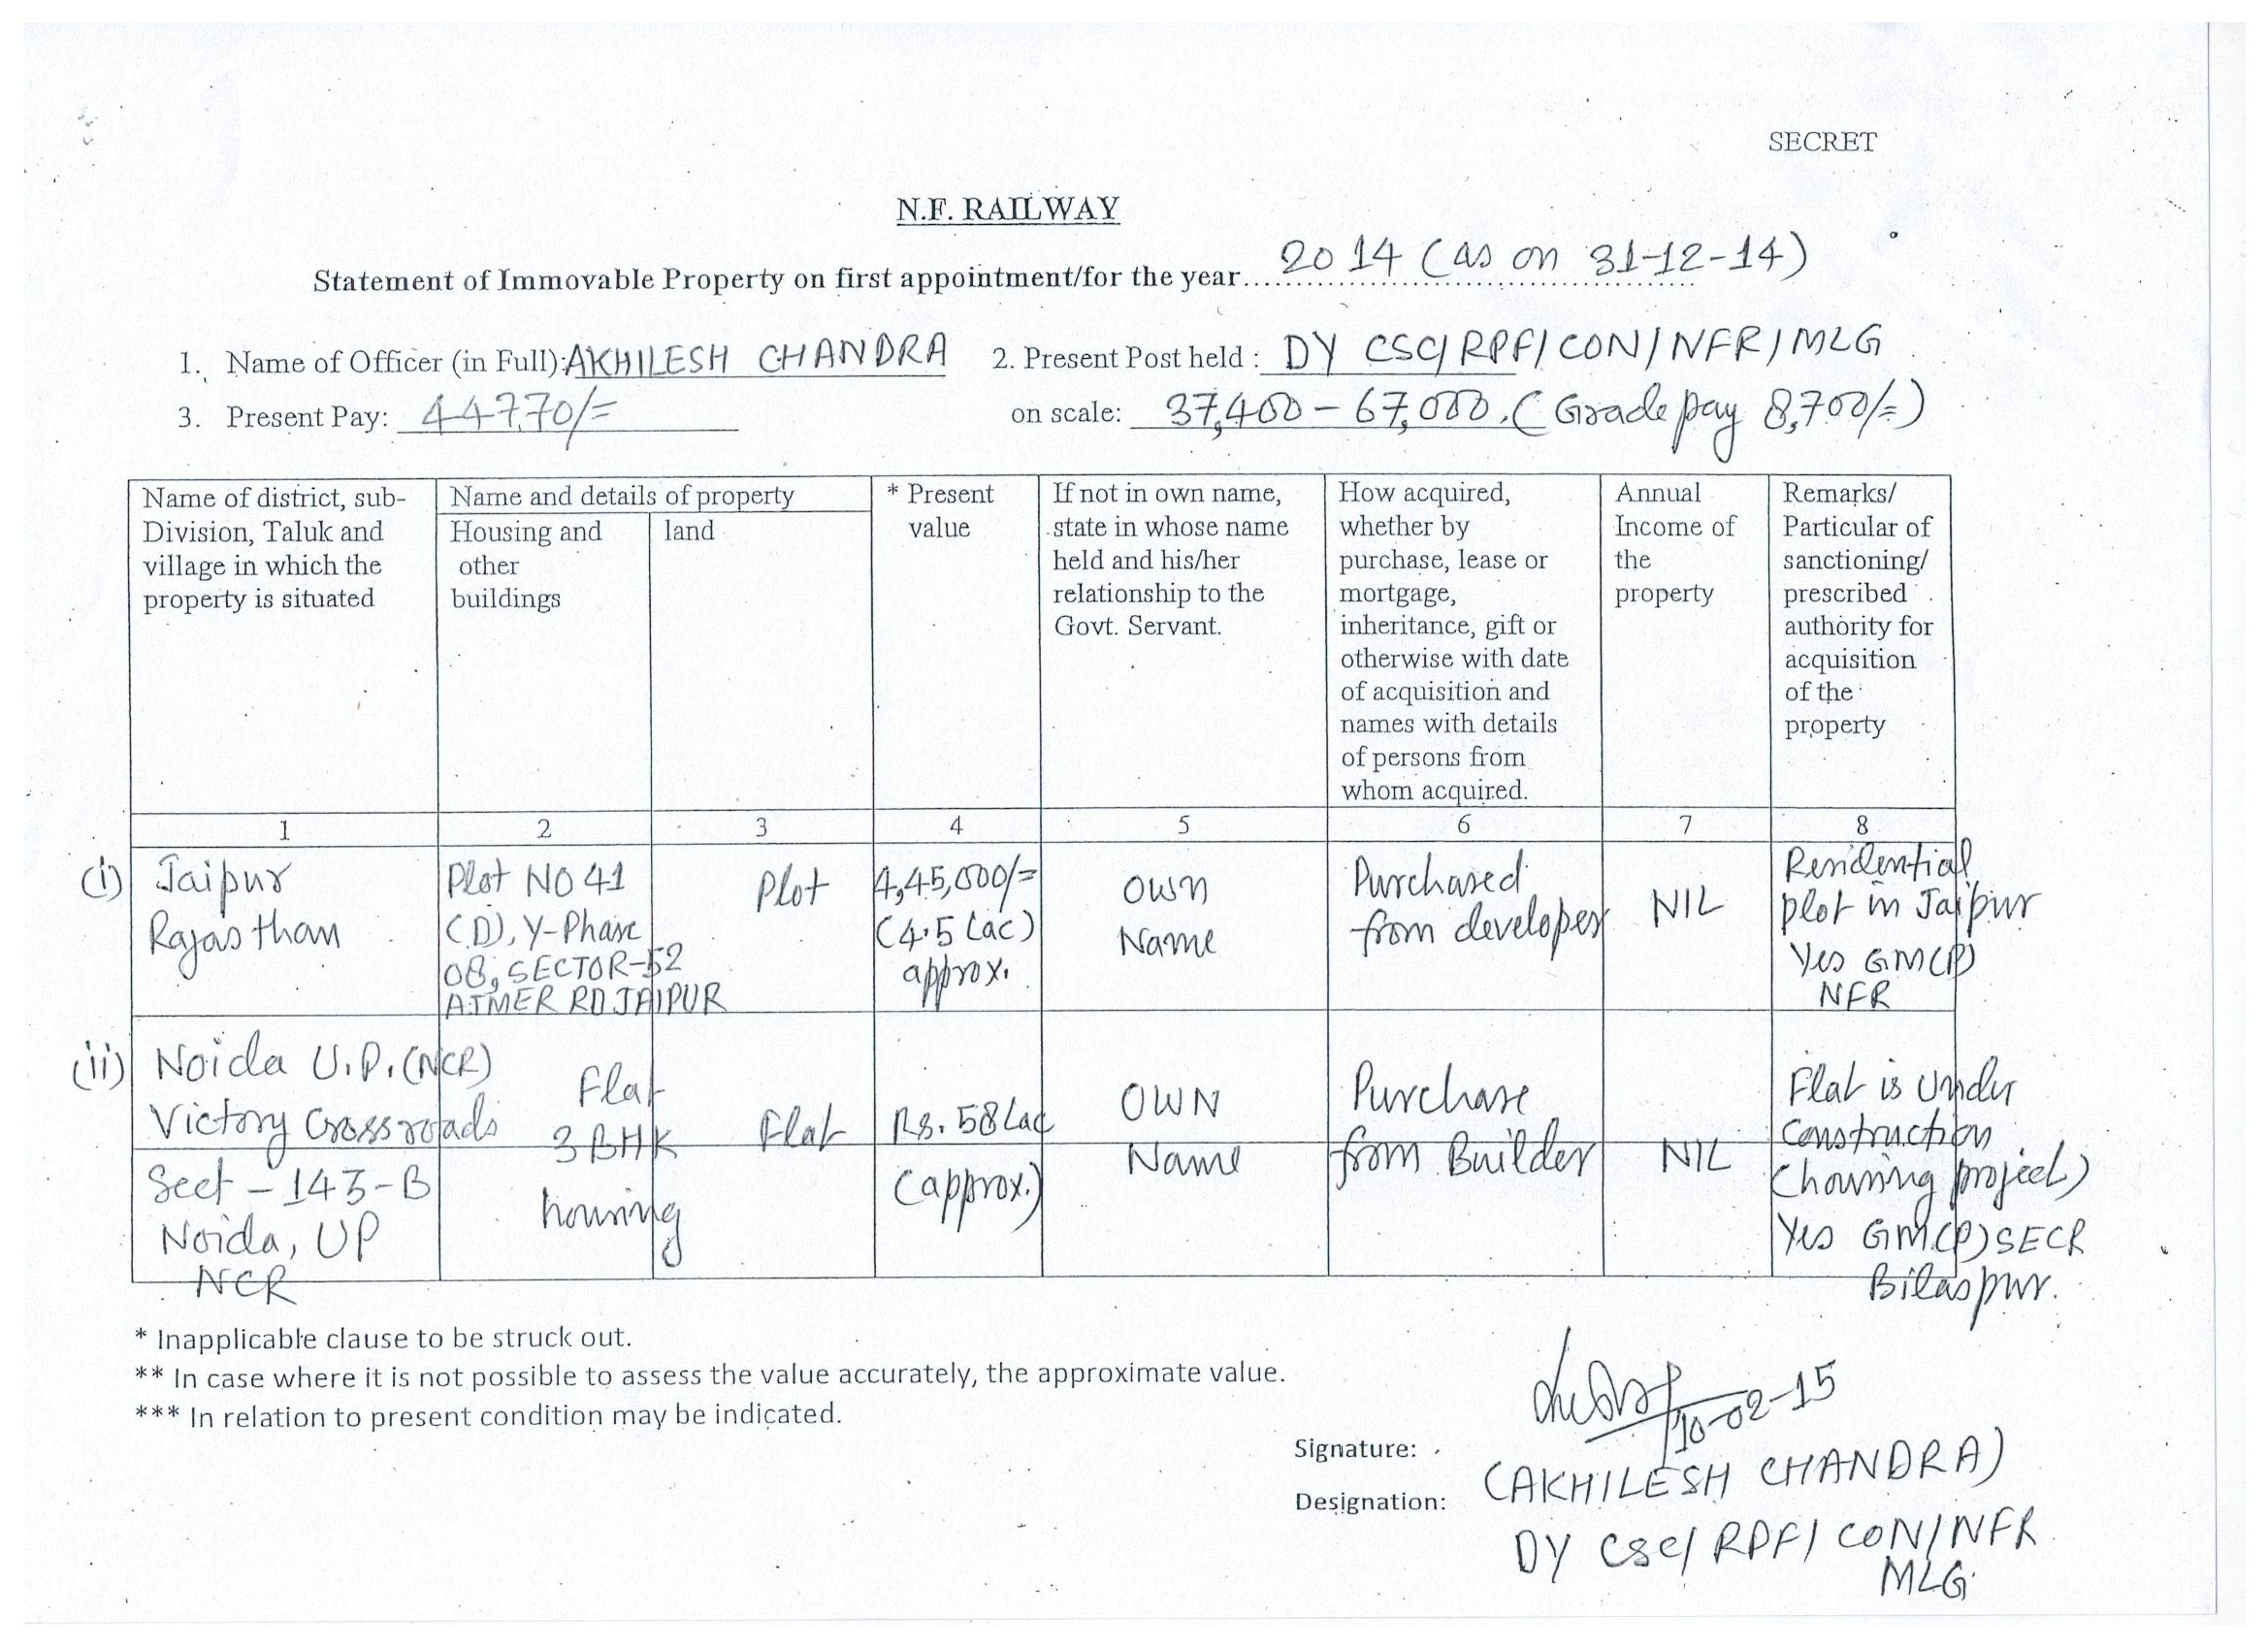 SECRET
N.F. RAILWAY
Statement of Immovable Property on first appointment/for the year....2014 (as on 31-12-14)
1. Name of Officer (in Full): AKHILESH CHANDRA 2. Present Post held : DY CSC/RPF/CON/NFR/MLG
3. Present Pay: 44770/= on scale: 37,400 - 67,000. (Grade pay 8,700/=)
Name of district, sub-
Division, Taluk and
village in which the
property is situated
Name and details of property
Housing and
other
buildings
land
* Present
value
If not in own name,
state in whose name
held and his/her
relationship to the
Govt. Servant.
How acquired,
whether by
purchase, lease or
mortgage,
inheritance, gift or
otherwise with date
of acquisition and
names with details
of persons from
whom acquired.
Annual
Income of
the
property
Remarks/
Particular of
sanctioning/
prescribed
authority for
acquisition
of the
property
1 2 3 4 5 6 7 8
(i) Jaipur
Rajasthan
Plot NO 41
(D), Y-Phase
08, SECTOR-52
AJMER RD JAIPUR
Plot
4,45,000/=
(4.5 Lac)
approx.
OWN
Name
Purchased
from developer
NIL
Residential
plot in Jaipur
Yes GM(P)
NFR
(ii) Noida U.P. (NCR)
Victory Crossroads
Sect - 143-B
Noida, UP
NCR
Flat
3 BHK
housing
Flat
Rs. 58 Lac
(approx.)
OWN
Name
Purchase
from Builder
NIL
Flat is Under
Construction
(housing project)
Yes GM(P) SECR
Bilaspur.
* Inapplicable clause to be struck out.
** In case where it is not possible to assess the value accurately, the approximate value.
*** In relation to present condition may be indicated.
10-02-15
Signature:
(AKHILESH CHANDRA)
Designation:
DY CSC/RPF/CON/NFR
MLG